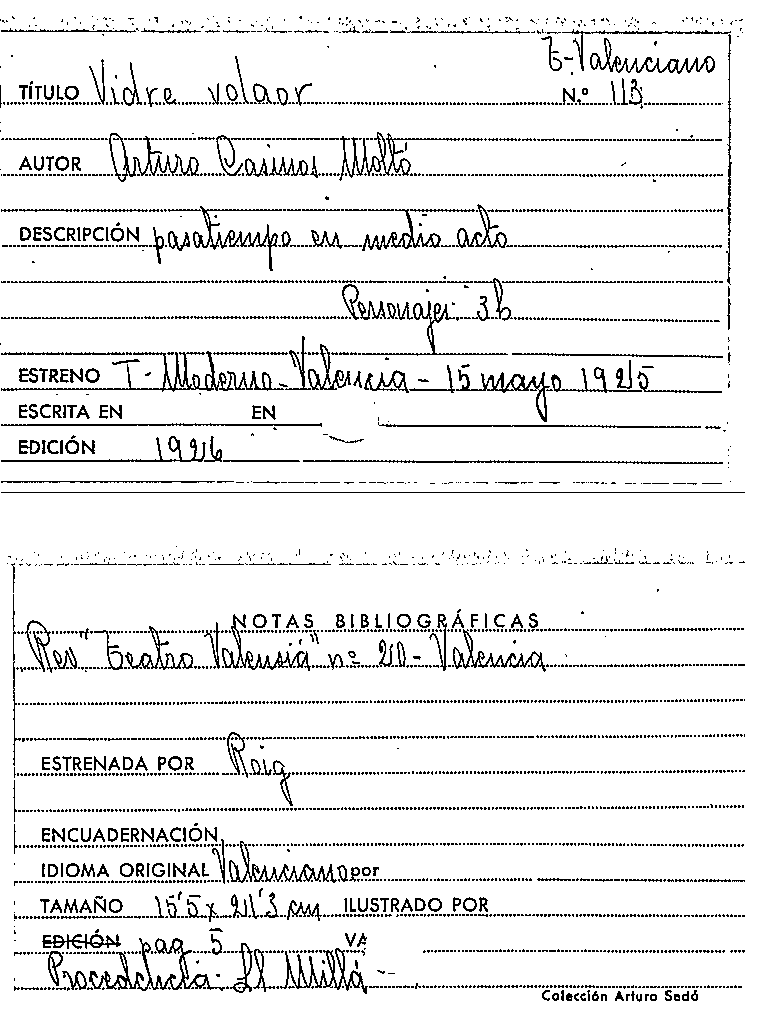 T-Valenciano
TÍTULO Vidre volaor N.º 113
AUTOR Arturo Casinos Moltó
DESCRIPCIÓN pasatiempo en medio acto
Personajes: 3h
ESTRENO T- Moderno - Valencia - 15 mayo 1925
ESCRITA EN EN
EDICIÓN 1926
NOTAS BIBLIOGRÁFICAS
Rev "Teatro Valensiá" nº 20 - Valencia
ESTRENADA POR Roig
ENCUADERNACIÓN
IDIOMA ORIGINAL Valenciano por
TAMAÑO 15'5 x 21'3 cm ILUSTRADO POR
EDICIÓN pag 5 VA
Ll Millá -
Colección Arturo Sedó